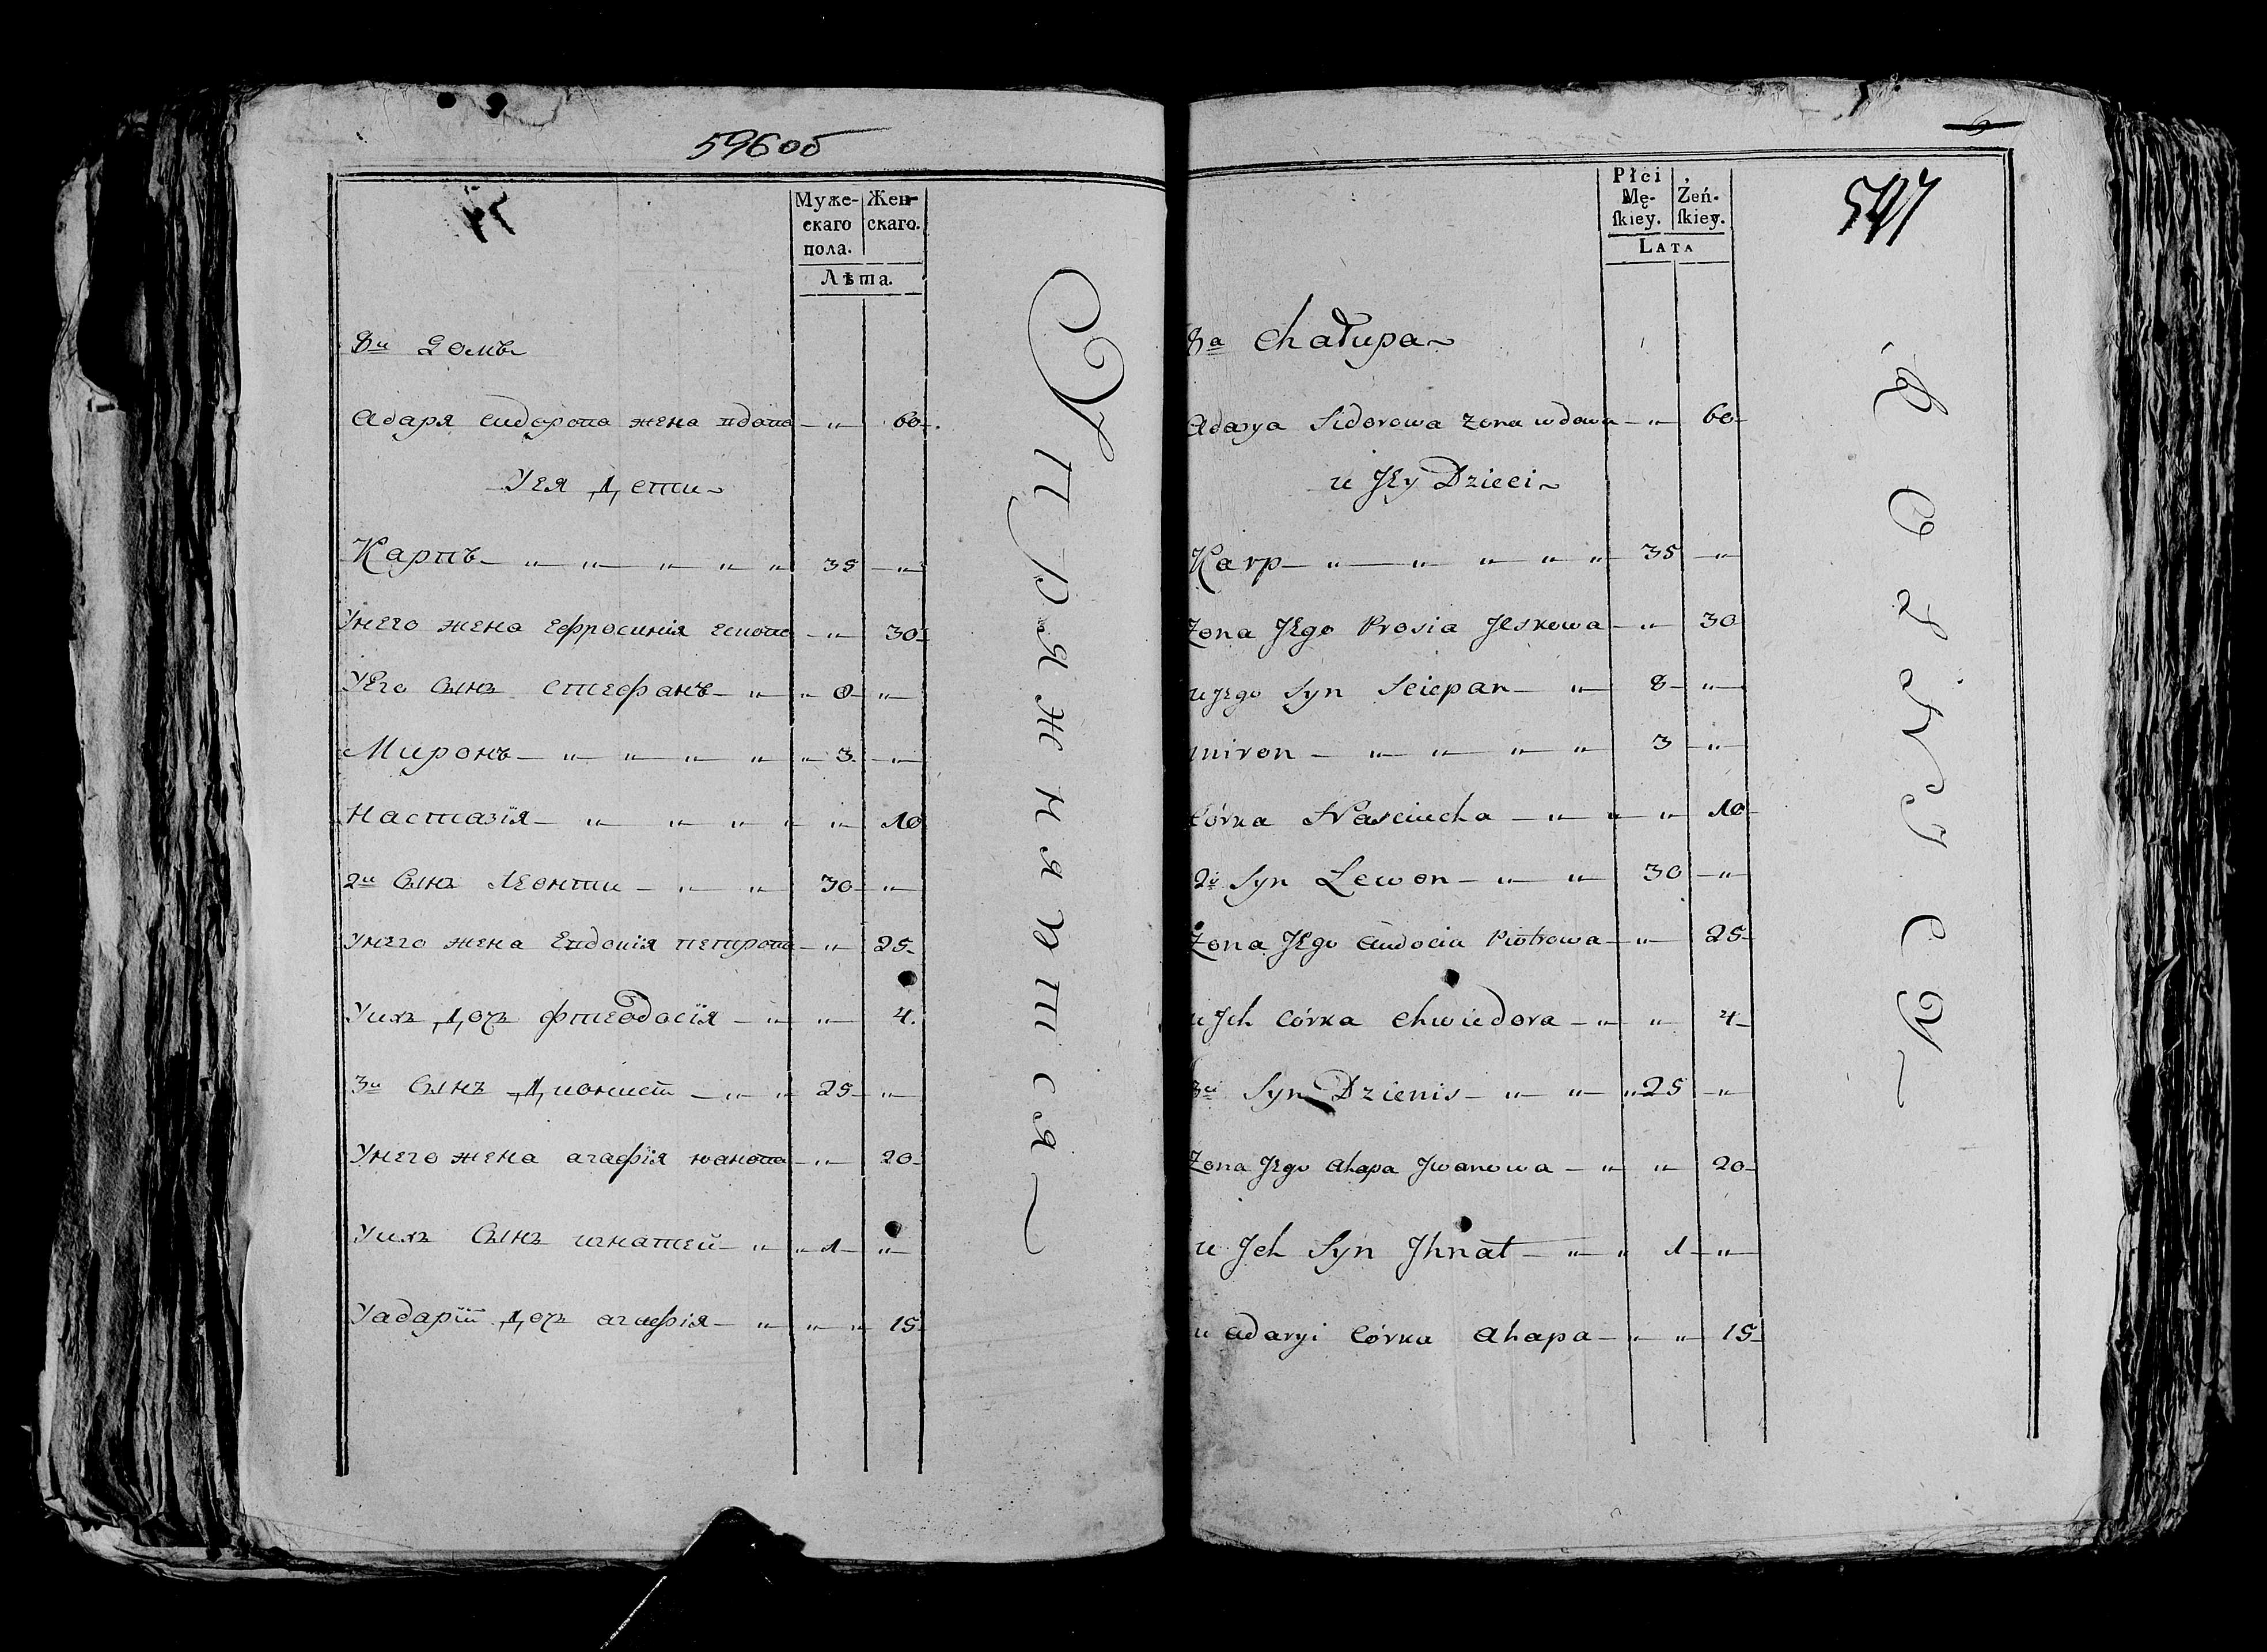 596об
Муже-
скаго
пола.
Жен-
скаго.
Лѣта.
8й Домъ
Адаря Сидорова жена вдова — „ 60
У ея Дети
Карпъ — „ „ „ „ „ 35 — „
У него жена Ефросинія Ескова — „ 30
У Его Сынъ Стефанъ — „ „ 8 — „
Миронъ — „ „ „ „ „ 3 — „
Настазія — „ „ „ „ „ 10
2й Сынъ Леонти — „ „ 30 — „
У него жена Евдокія Петрова — „ 25
У ихъ Дочъ Фтеодосія — „ „ 4
3й Сынъ Дионист — „ „ 25 — „
У него жена Агафія Иванова — „ 20
У ихъ Сынъ Игнатей — „ „ 1 — „
У Адаріи Дочъ Агафія — „ „ „ 15
Пряжнаются
Płci
Mę-
ſkiey.
Żeń-
ſkiey.
LATA
597
8a Chałupa
Adarya Sidorowa Zona wdowa — „ 60
u JEy Dzieci
Karp — „ „ „ „ „ 35 — „
Zona JEgo Prosia Jeskowa — „ 30
u JEgo Syn Sciepan — „ 8 — „
miron — „ „ „ „ 3 — „
Córka Nasciucha — „ „ „ 10
2i Syn Lewon — „ „ 30 — „
Zona JEgo Audocia Piotrowa — „ 25
u Jch Córka Chwiedora — „ „ 4
3i Syn Dzienis — „ „ „ 25 — „
Zona JEgo Ahapa Jwanowa — „ „ 20
u Jch Syn Jhnat — „ „ 1 — „
u Adaryi Córka Ahapa — „ „ 15